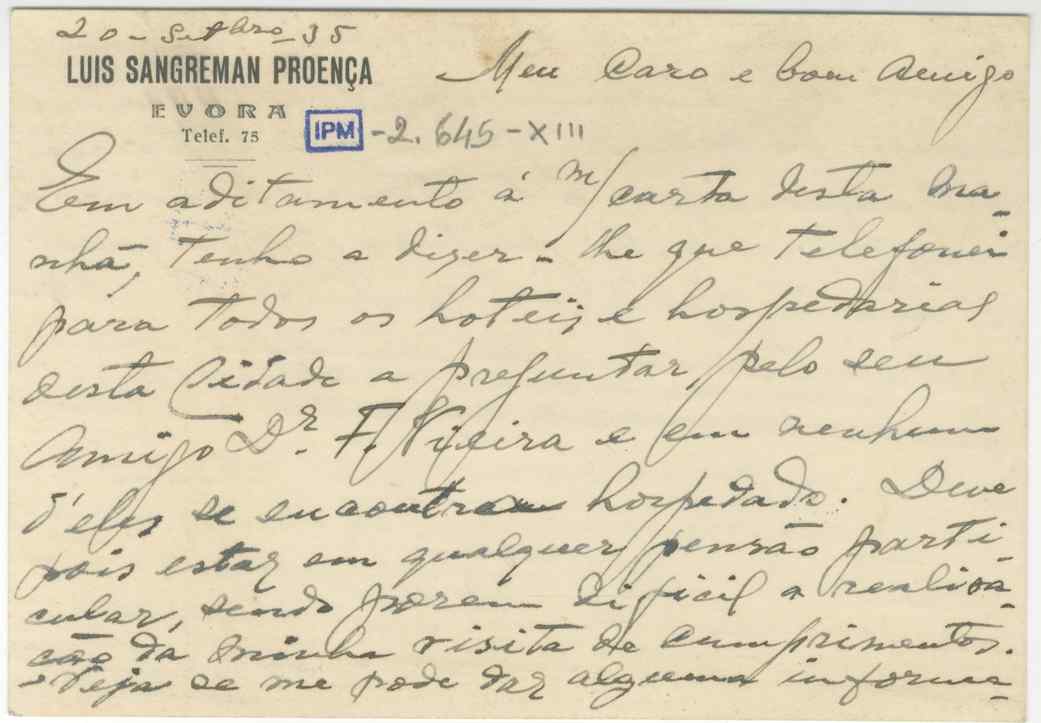 20-Setbro-35
LUIS SANGREMAN PROENÇA
EVORA
Telef. 75
Meu Caro e bom Amigo
IPM -2.645-XIII
Em aditamento á m/ carta desta ma-
nhã, tenho a dizer-lhe que telefonei
para todos os hoteis e hospedarias
desta Cidade a preguntar pelo seu
Amigo Dr. F. Vieira e em nenhum
d'eles se encontra hospedado. Deve
pois estar em qualquer pensão parti-
cular, sendo porem dificil a realisa-
ção da minha visita de cumprimentos.
Veja se me pode dar alguma informa-